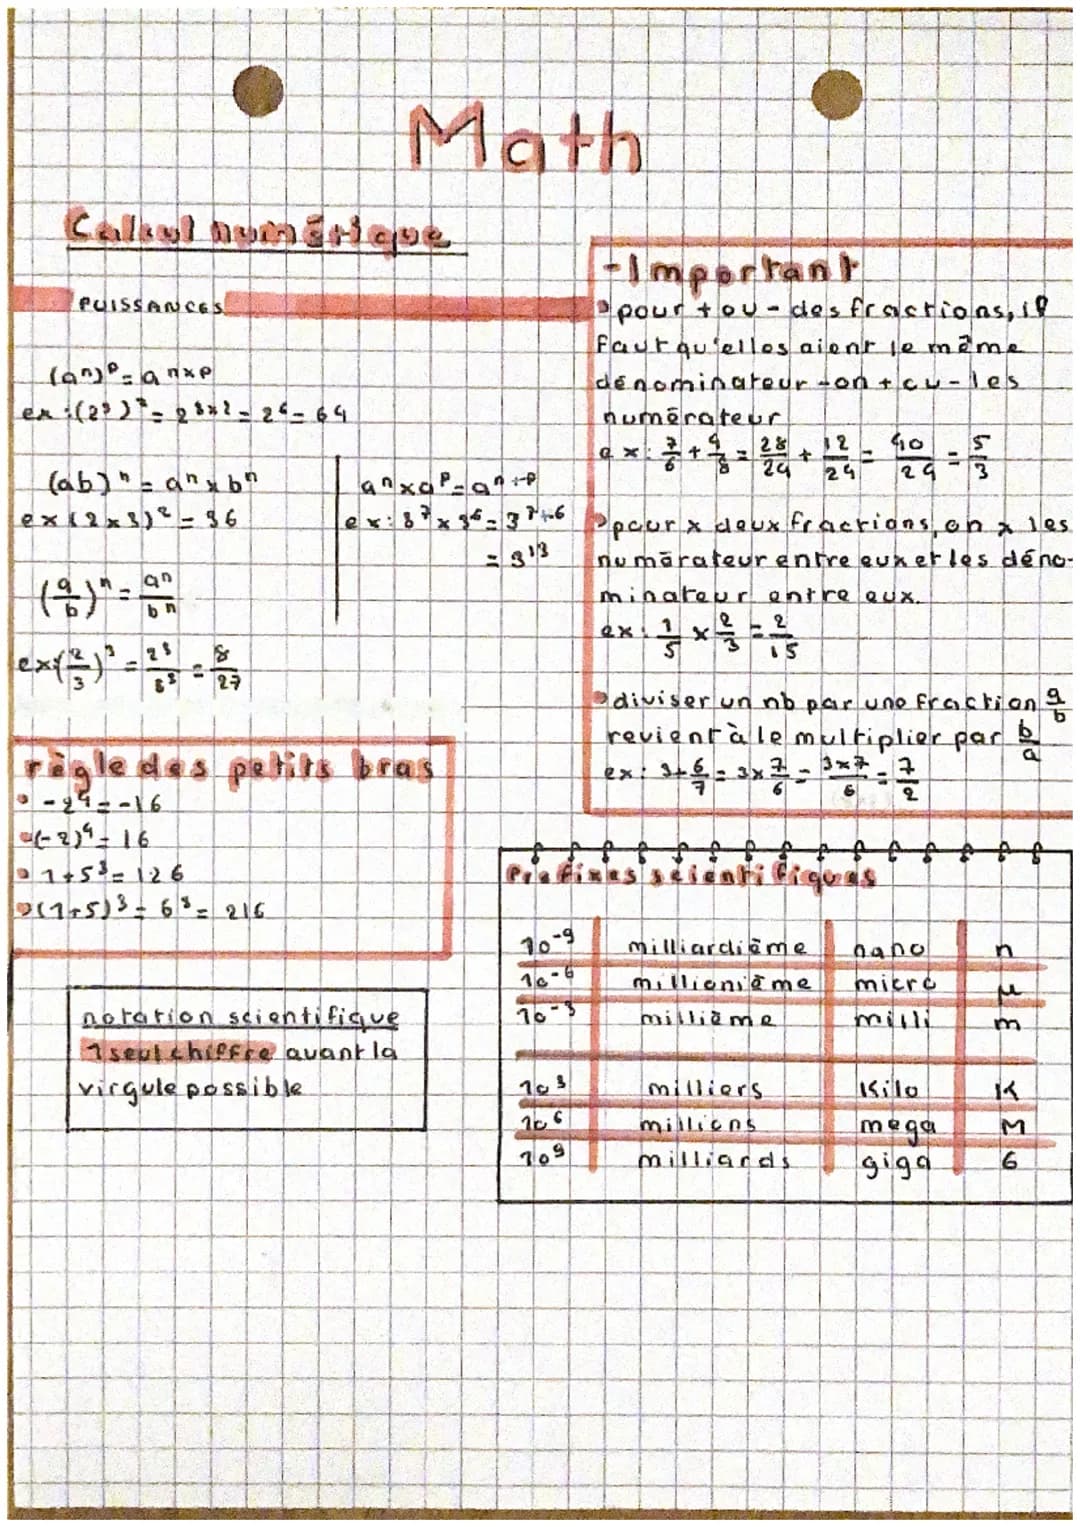 Math
Calcul numérique
PUISSANCES
(aⁿ)ᵖ = aⁿˣᵖ
ex : (2³)² = 2³ˣ² = 2⁶ = 64
(ab)ⁿ = aⁿ x bⁿ
ex (2x3)² = 36
(a/b)ⁿ = aⁿ/bⁿ
ex (2/3)³ = 2³/3³ = 8/27
aⁿ x aᵖ = aⁿ⁺ᵖ
ex : 3⁷ x 3⁶ = 3⁷⁺⁶
= 3¹³
règle des petits bras
• -2⁴ = -16
• (-2)⁴ = 16
• 1+5³ = 126
• (1+5)³ = 6³ = 216
notation scientifique
1 seul chiffre avant la
virgule possible
- Important
• pour + ou - des fractions, il
faut qu'elles aient le même
dénominateur → on + ou - les
numérateur
ex : 7/6 + 4/8 = 28/24 + 12/24 = 40/24 = 5/3
• pour x deux fractions, on x les
numérateur entre eux et les déno-
minateur entre eux.
ex : 1/5 x 2/3 = 2/15
• diviser un nb par une fraction a/b
revient à le multiplier par b/a
ex : 3÷6/7 = 3x7/6 = 3x7/6 = 7/2
Préfixes scientifiques
10⁻⁹ milliardième nano n
10⁻⁶ millionième micro μ
10⁻³ millième milli m
10³ milliers Kilo K
10⁶ millions mega M
10⁹ milliards giga G